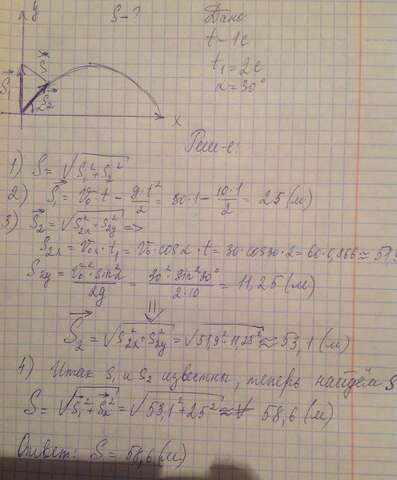 y S-?
Дано
t-1c
t₁=2c
α=30°
S₁ S S₂ α x
Реш-е:
1) S=√S₁²+S₂²
2) S₁=V₀·t-g·t²/2=30·1-10·1/2=25(м)
3) S₂=√S₂ₓ²+S₂y² =>
S₂ₓ=V₀ₓ·t₁=V₀·cosα·t=30·cos30·2=60·0,866≈51,9
S₂y=V₀²·sin²α/2g=30²·sin²30°/2·10=11,25(м)
⇓
S₂=√S₂ₓ²+S₂y²=√51,9²+11,25²≈53,1(м)
4) Итак S₁ и S₂ известны, теперь найдём S
S=√S₁²+S₂²=√53,1²+25²≈58,6(м)
Ответ: S=58,6(м)